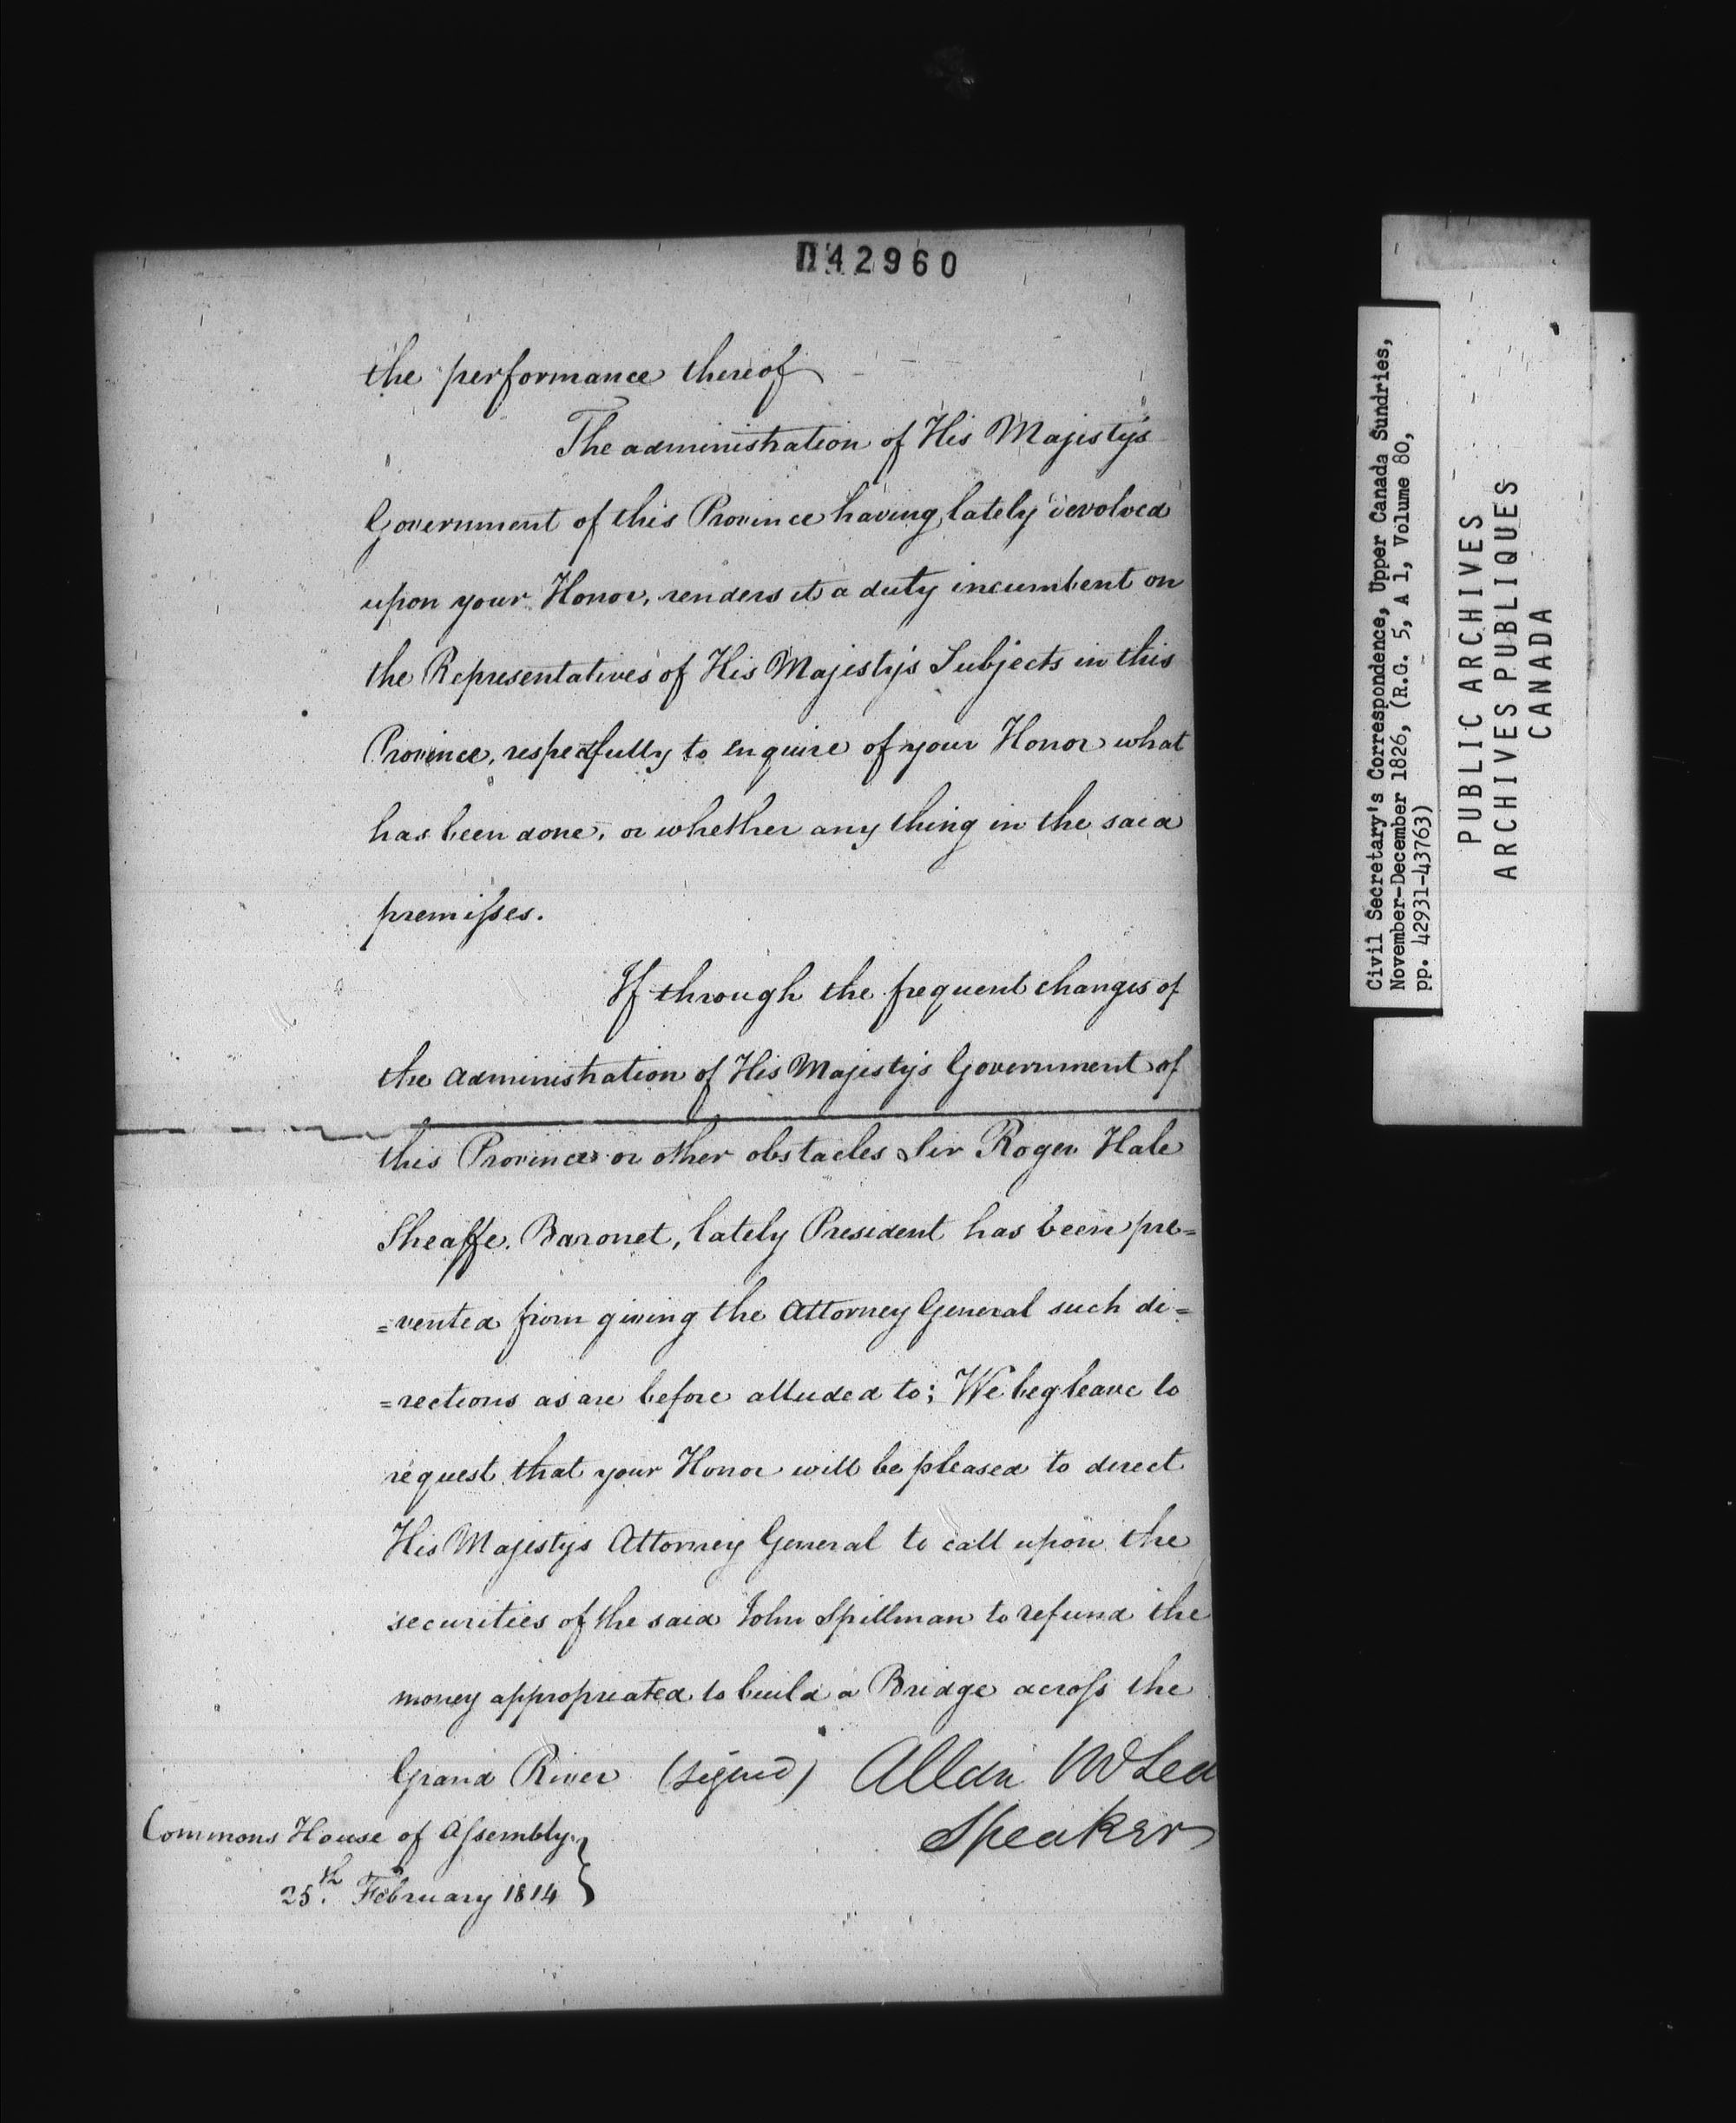 042960
the performance thereof
The administration of His Majesty's
Government of this Province having lately devolved
upon your Honor, renders it a duty incumbent on
the Representatives of His Majesty's Subjects in this
Province, respectfully to enquire of your Honor what
has been done, or whether any thing in the said
premisses.
If through the frequent changes of
the administration of His Majesty's Government of
this Province or other obstacles Sir Roger Hale
Sheaffe, Baronet, lately President has been pre=
=vented from giving the Attorney General such di=
=rections as are before alluded to; We beg leave to
request that your Honor will be pleased to direct
His Majestys Attorney General to call upon the
securities of the said John Spillman to refund the
money appropriated to build a Bridge across the
Grand River (signed) Allan McLean
Speaker
Commons House of Assembly
25th February 1814
Civil Secretary's Correspondence, Upper Canada Sundries,
November-December 1826, (R.G. 5, A 1, Volume 80,
pp. 42931-43763)
PUBLIC ARCHIVES
ARCHIVES PUBLIQUES
CANADA